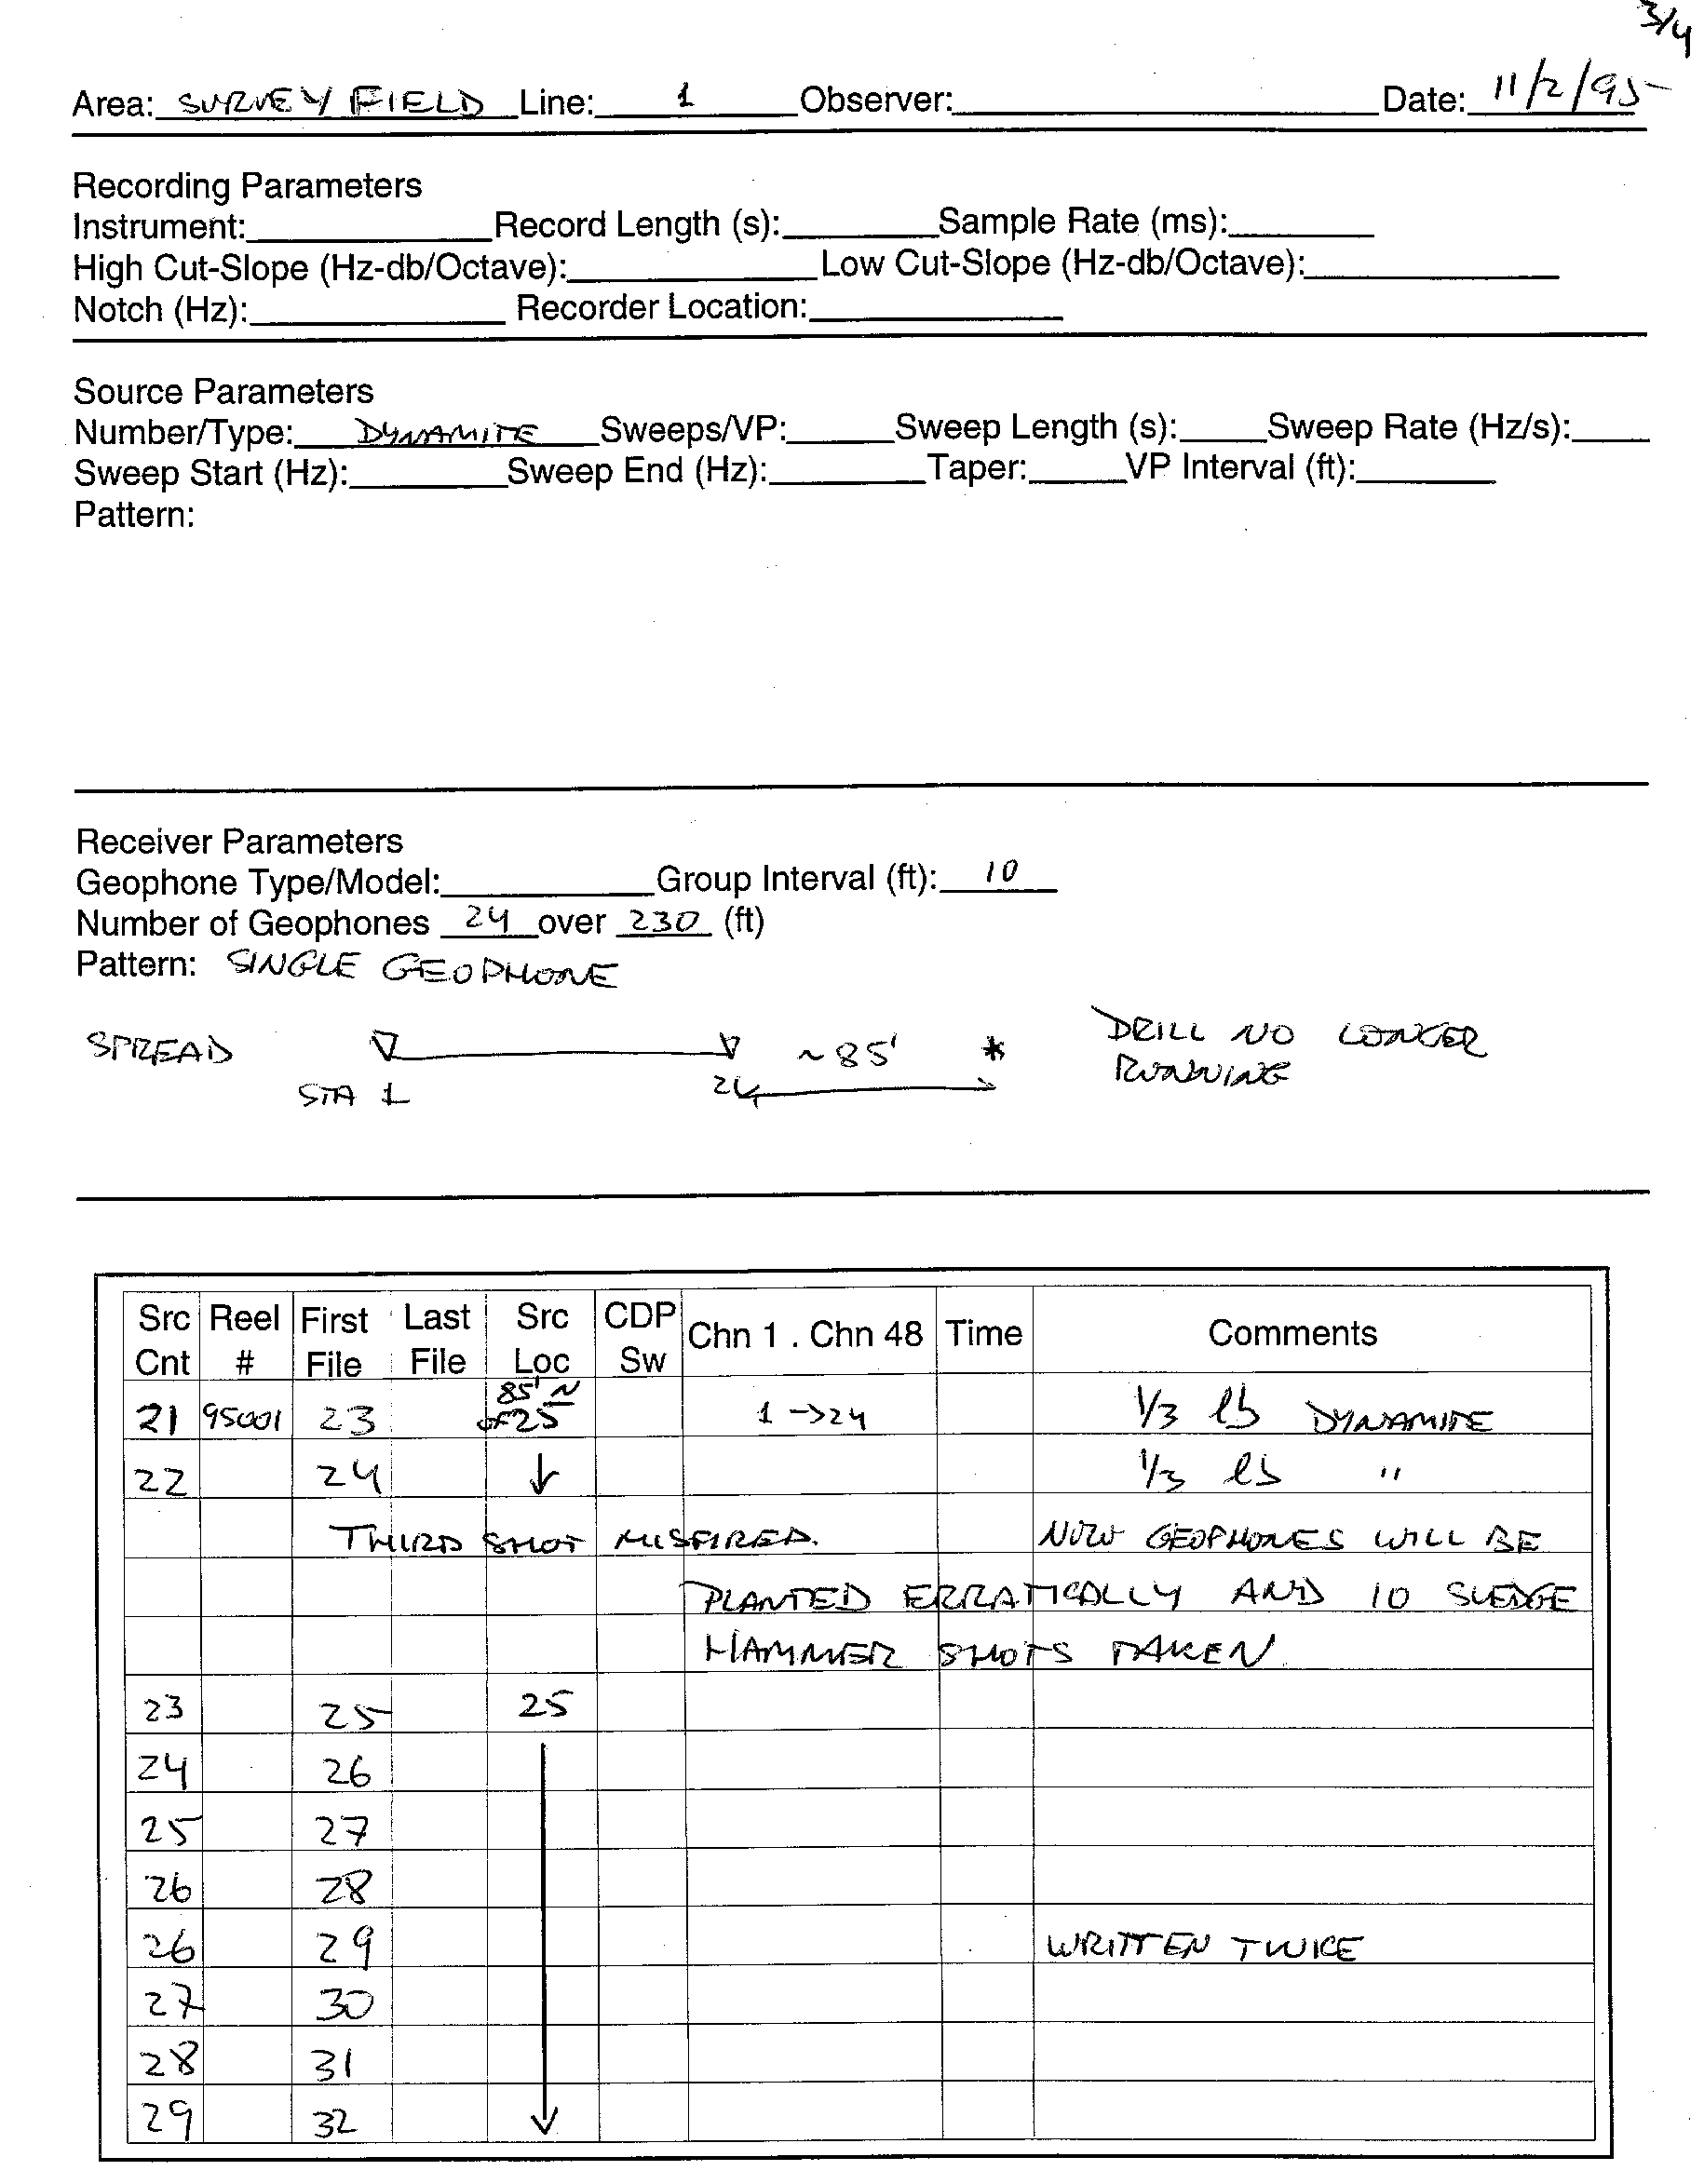 3/4
Area: SURVEY FIELD Line: 1 Observer: Date: 11/2/95
Recording Parameters
Instrument: Record Length (s): Sample Rate (ms):
High Cut-Slope (Hz-db/Octave): Low Cut-Slope (Hz-db/Octave):
Notch (Hz): Recorder Location:
Source Parameters
Number/Type: DYNAMITE Sweeps/VP: Sweep Length (s): Sweep Rate (Hz/s):
Sweep Start (Hz): Sweep End (Hz): Taper: VP Interval (ft):
Pattern:
Receiver Parameters
Geophone Type/Model: Group Interval (ft): 10
Number of Geophones 24 over 230 (ft)
Pattern: SINGLE GEOPHONE
SPREAD ~85' * DRILL NO LONGER
RUNNING
STA 1 24
Src Reel First Last Src CDP Chn 1 . Chn 48 Time Comments
Cnt # File File Loc Sw
85' N
21 95001 23 of 25 1 -> 24 1/3 lb DYNAMITE
22 24 ↓ 1/3 lb "
THIRD SHOT MISFIRED. NOW GEOPHONES WILL BE
PLANTED ERRATICALLY AND 10 SLEDGE
HAMMER SHOTS TAKEN.
23 25 25
24 26
25 27
26 28
26 29 WRITTEN TWICE
27 30
28 31
29 32